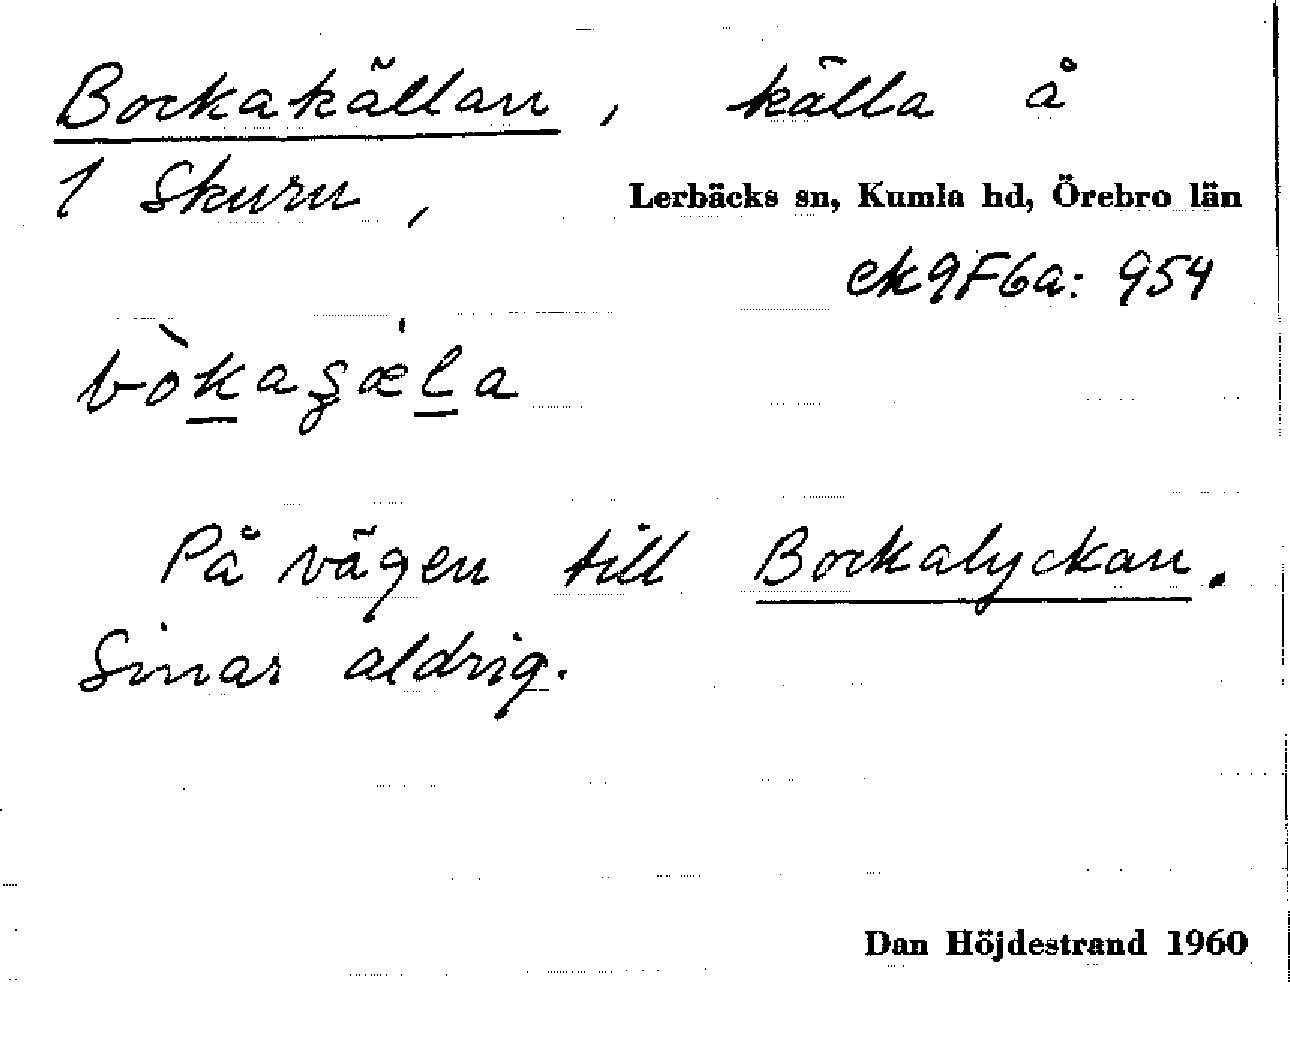 Bockakällan, källa å
1 Skuru, Lerbäcks sn, Kumla hd, Örebro län
ek9F6a: 954
bòkaʂæ̀la
På vägen till Bockalyckan.
Sinar aldrig.
Dan Höjdestrand 1960